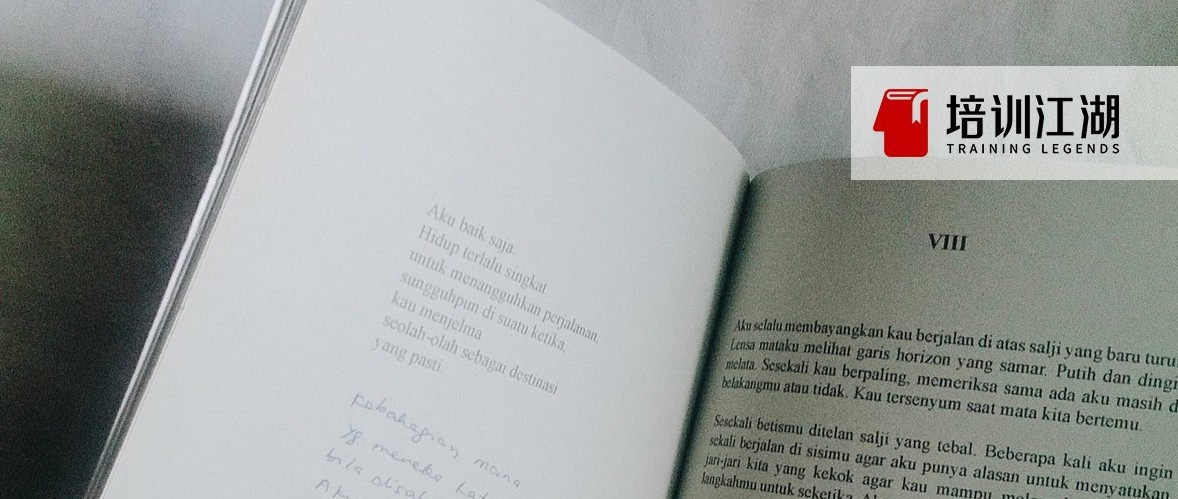 培训江湖
TRAINING LEGENDS
Aku baik saja.
Hidup terlalu singkat
untuk menangguhkan perjalanan,
sungguhpun di suatu ketika,
kau menjelma
seolah-olah sebagai destinasi
yang pasti
Kebahagian mana
yg mereka
bila
VIII
Aku selalu membayangkan kau berjalan di atas salji yang baru
Lensa mataku melihat garis horizon yang samar. Putih dan
melata. Sesekali kau berpaling, memeriksa sama ada aku masih
belakangmu atau tidak. Kau tersenyum saat mata kita bertemu.
Sesekali betismu ditelan salji yang tebal. Beberapa kali aku ingin
sekali berjalan di sisimu agar aku punya alasan untuk menyatukan
jari-jari kita yang kekok agar kau mampu
langkahmu untuk seketika.